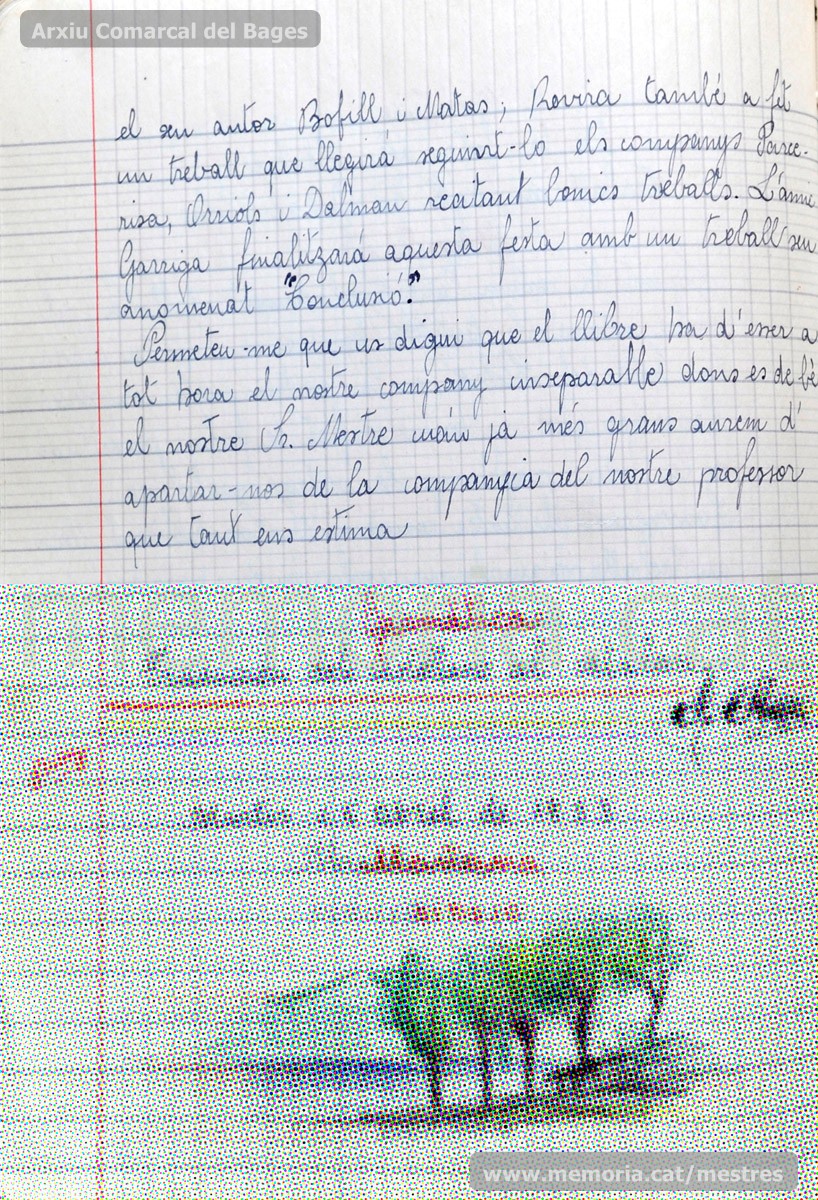 Arxiu Comarcal del Bages
el seu autor Bofill i Matas; Rovira també a fet
un treball que llegirá seguint-lo els companys Parce-
risa, Orriols i Dalmau recitant bonics treballs. L'amic
Garriga finalitzará aquesta festa amb un treball seu
anomenat "Conclusió."
Permeteu-me que us digui que el llibre ha d'esser a
tot hora el nostre company inseparable dons es de bé
el nostre Sr. Mestre cuan já més grans aurem d'
apartar-nos de la companyia del nostre professor
que tant ens estima
abril de 1933
www.memoria.cat/mestres